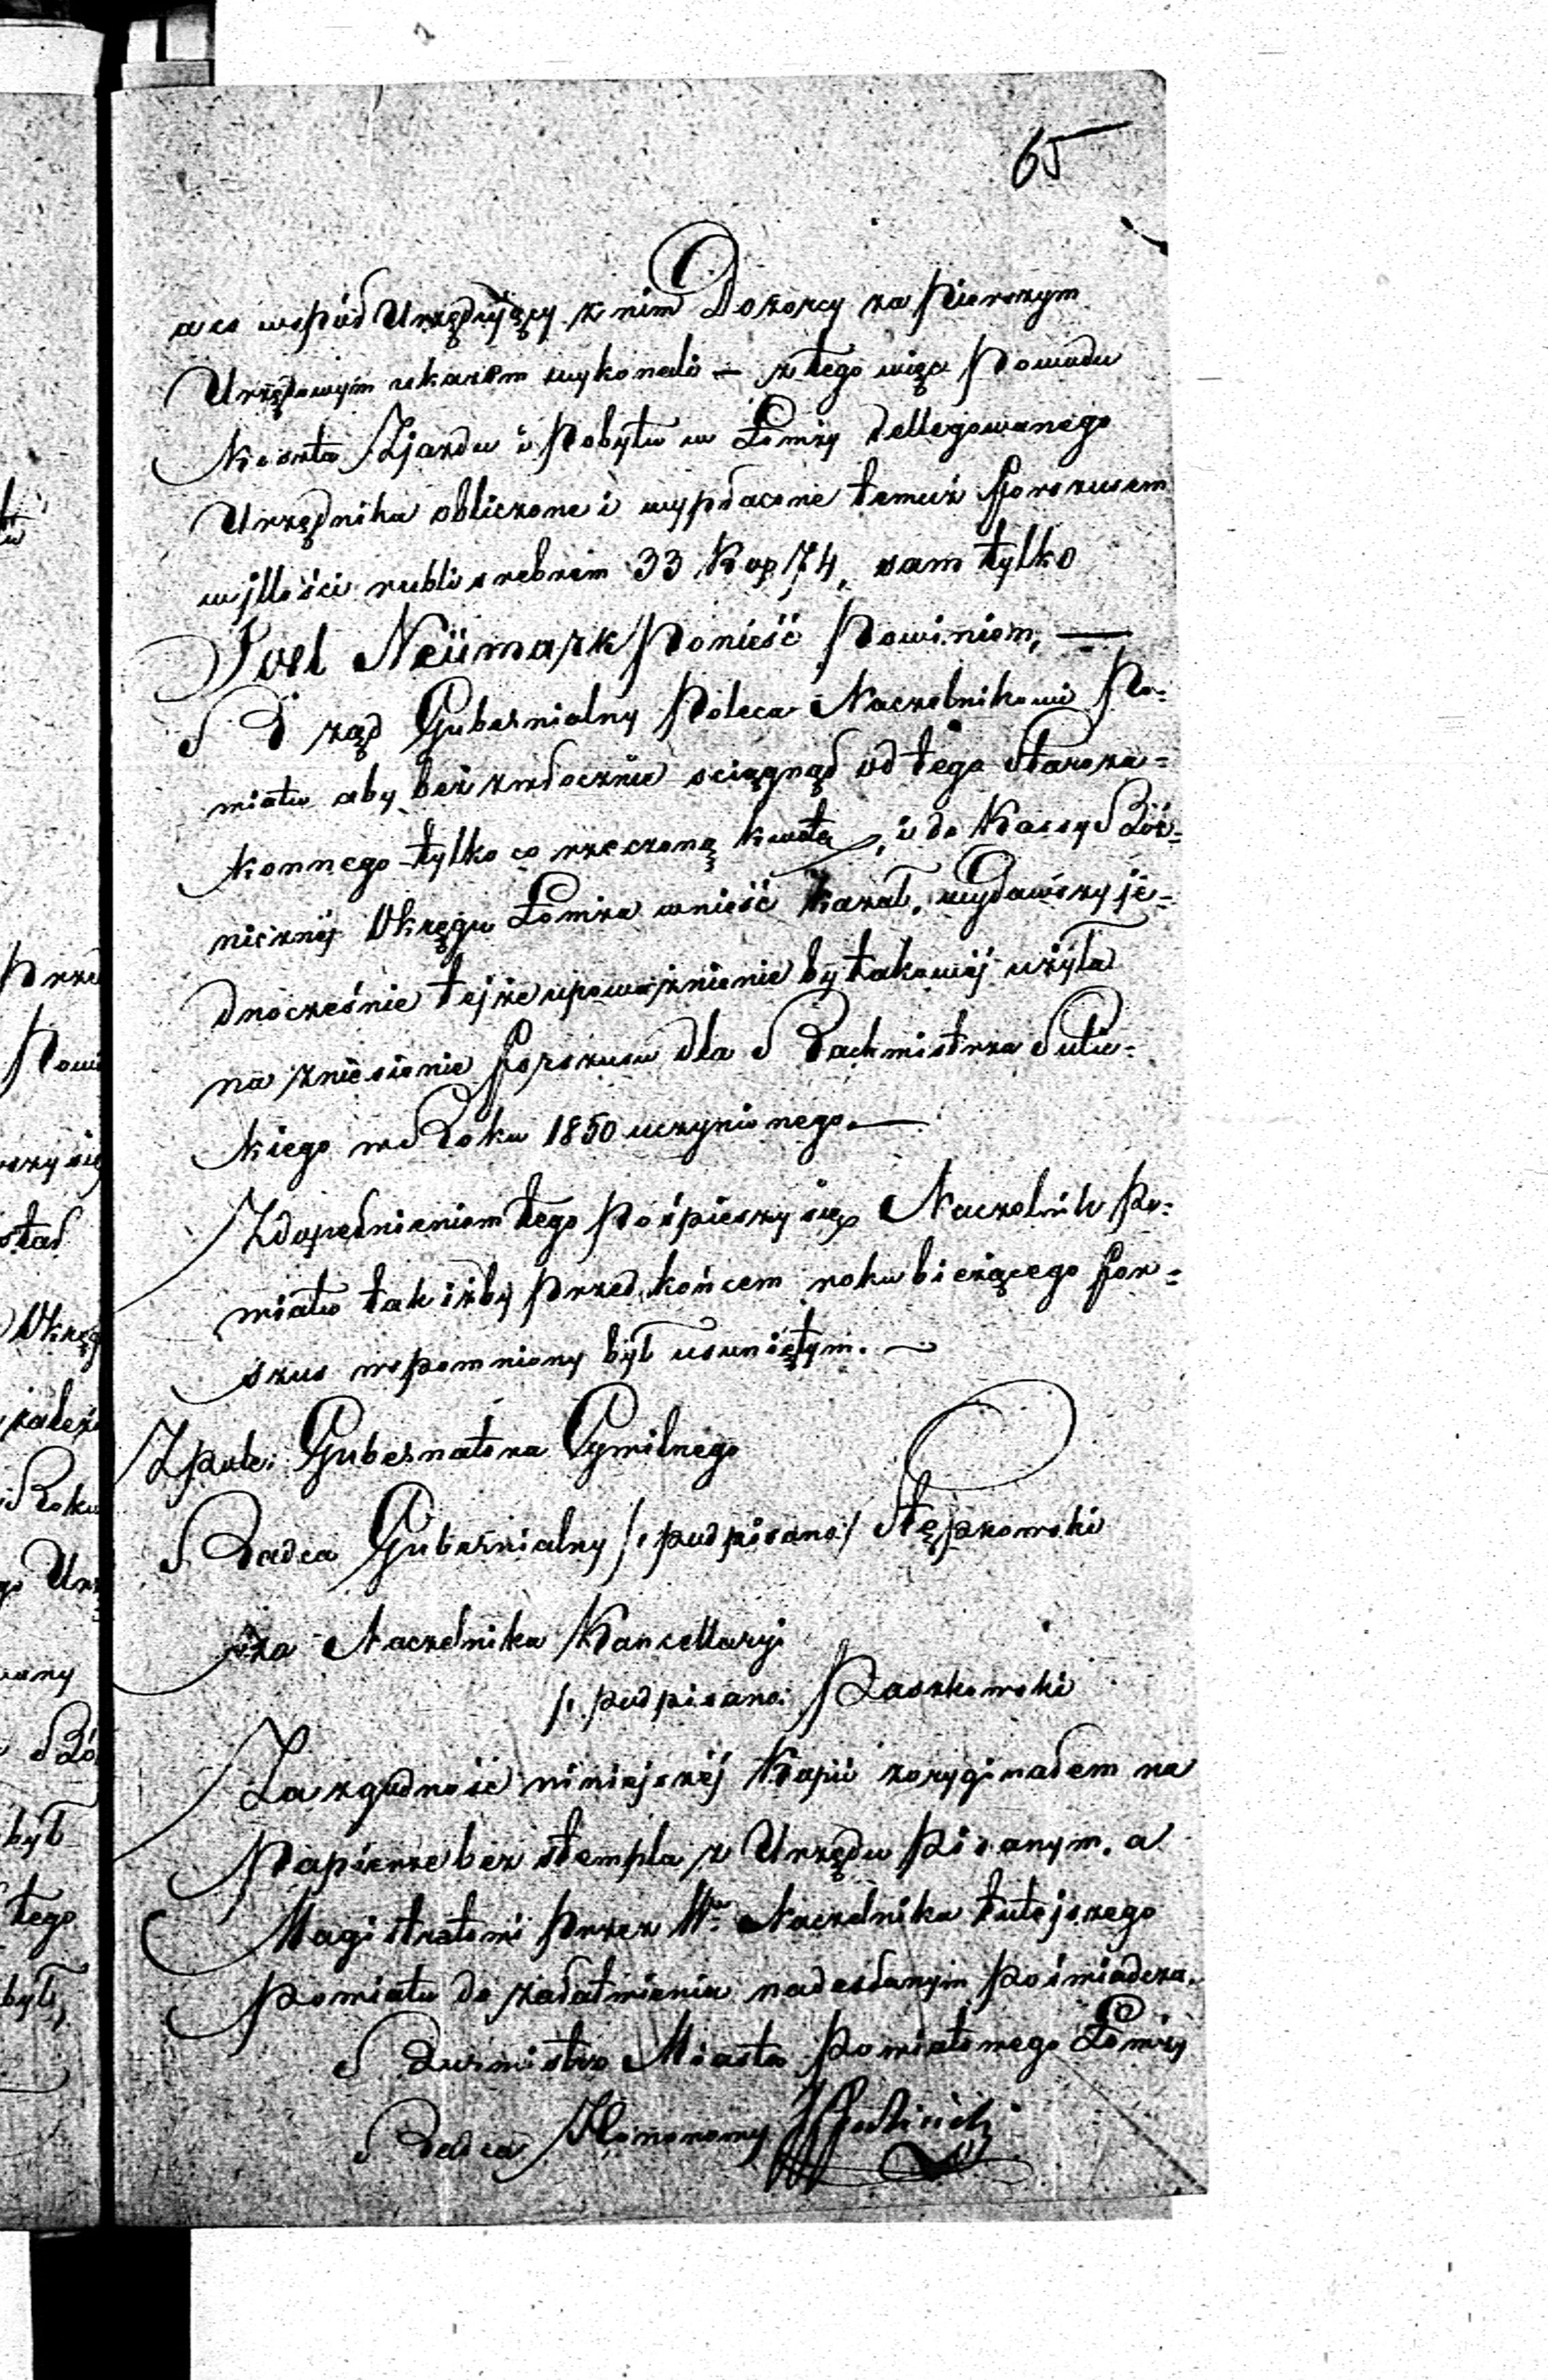 65
a co wspód Urzędujący z nim Dozorcy za Pierwszym
Urzędowym ukazem wykonali — z tego więc Powodu
Koszta Zjazdu i Pobytu w Łomży dellegowanego
Urzędnika obliczone i wypłacone temuż forszusem
w jllości rubli srebrem 33 Kop 74, sam tylko
Joel Neümark Ponieść Powinien, —
Rząd Gubernialny Poleca Naczelnikowi Po=
wiatu aby bezzwłocznie ściągnął od tego Staroza=
konnego tylko co rzeczoną kwotę, i do Kassy Bóż=
nicznéj Okręgu Łomża wnieść kazał, wydawszy je=
dnocześnie tejże upoważnienie by takowéj użyła
na zniesienie forszusu dla Rachmistrza Sule=
kiego w Roku 1850 uczynionego. —
Z dopełnieniem tego Pośpieszy się Naczelnik Po=
wiatu tak iżby Przed końcem roku bieżącego for=
szus wspomniony był usuniętym. —
Z pole: Gubernatora Cywilnego
Radca Gubernialny /: podpisano:/ Stępkowski
za Naczelnika Kancellaryi
/: podpisano: Paszkowski
Za zgodność niniejszéj Kopii z oryginałem na
Papierze bez stempla z Urzędu Pisanym, a
Magistratowi Przez Wo Naczelnika tutejszego
Powiatu do załatwienia nadesłanym Poświadcza.
Burmistrz Miasta Powiatowego Łomży
Radca Honorowy